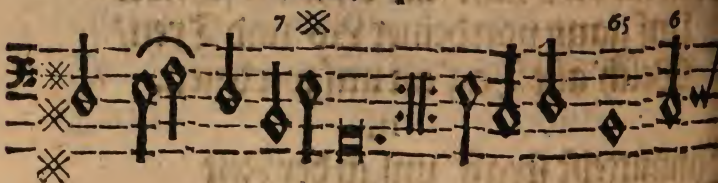 7 65 6